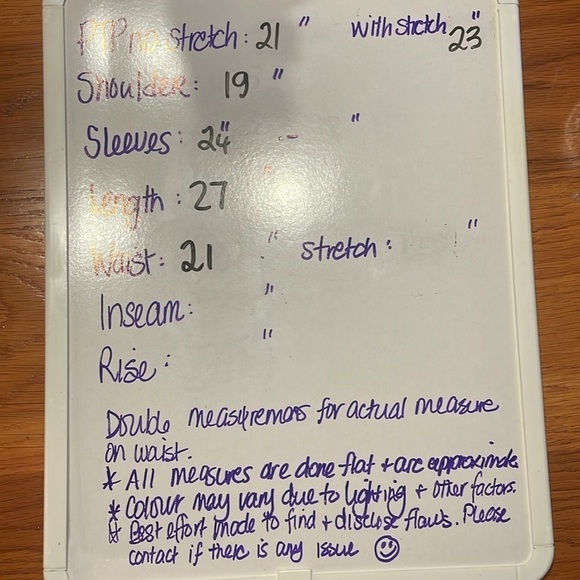 PTP no stretch: 21 " with stretch 23"
Shoulder: 19 "
Sleeves: 24" - "
Length: 27 "
Waist: 21 " stretch: "
Inseam: "
Rise: "
Double measurements for actual measure
on waist.
* All measures are done flat + are approximate
* Colour may vary due to lighting + other factors.
* Best effort made to find + disclose flaws. Please
contact if there is any issue ☺